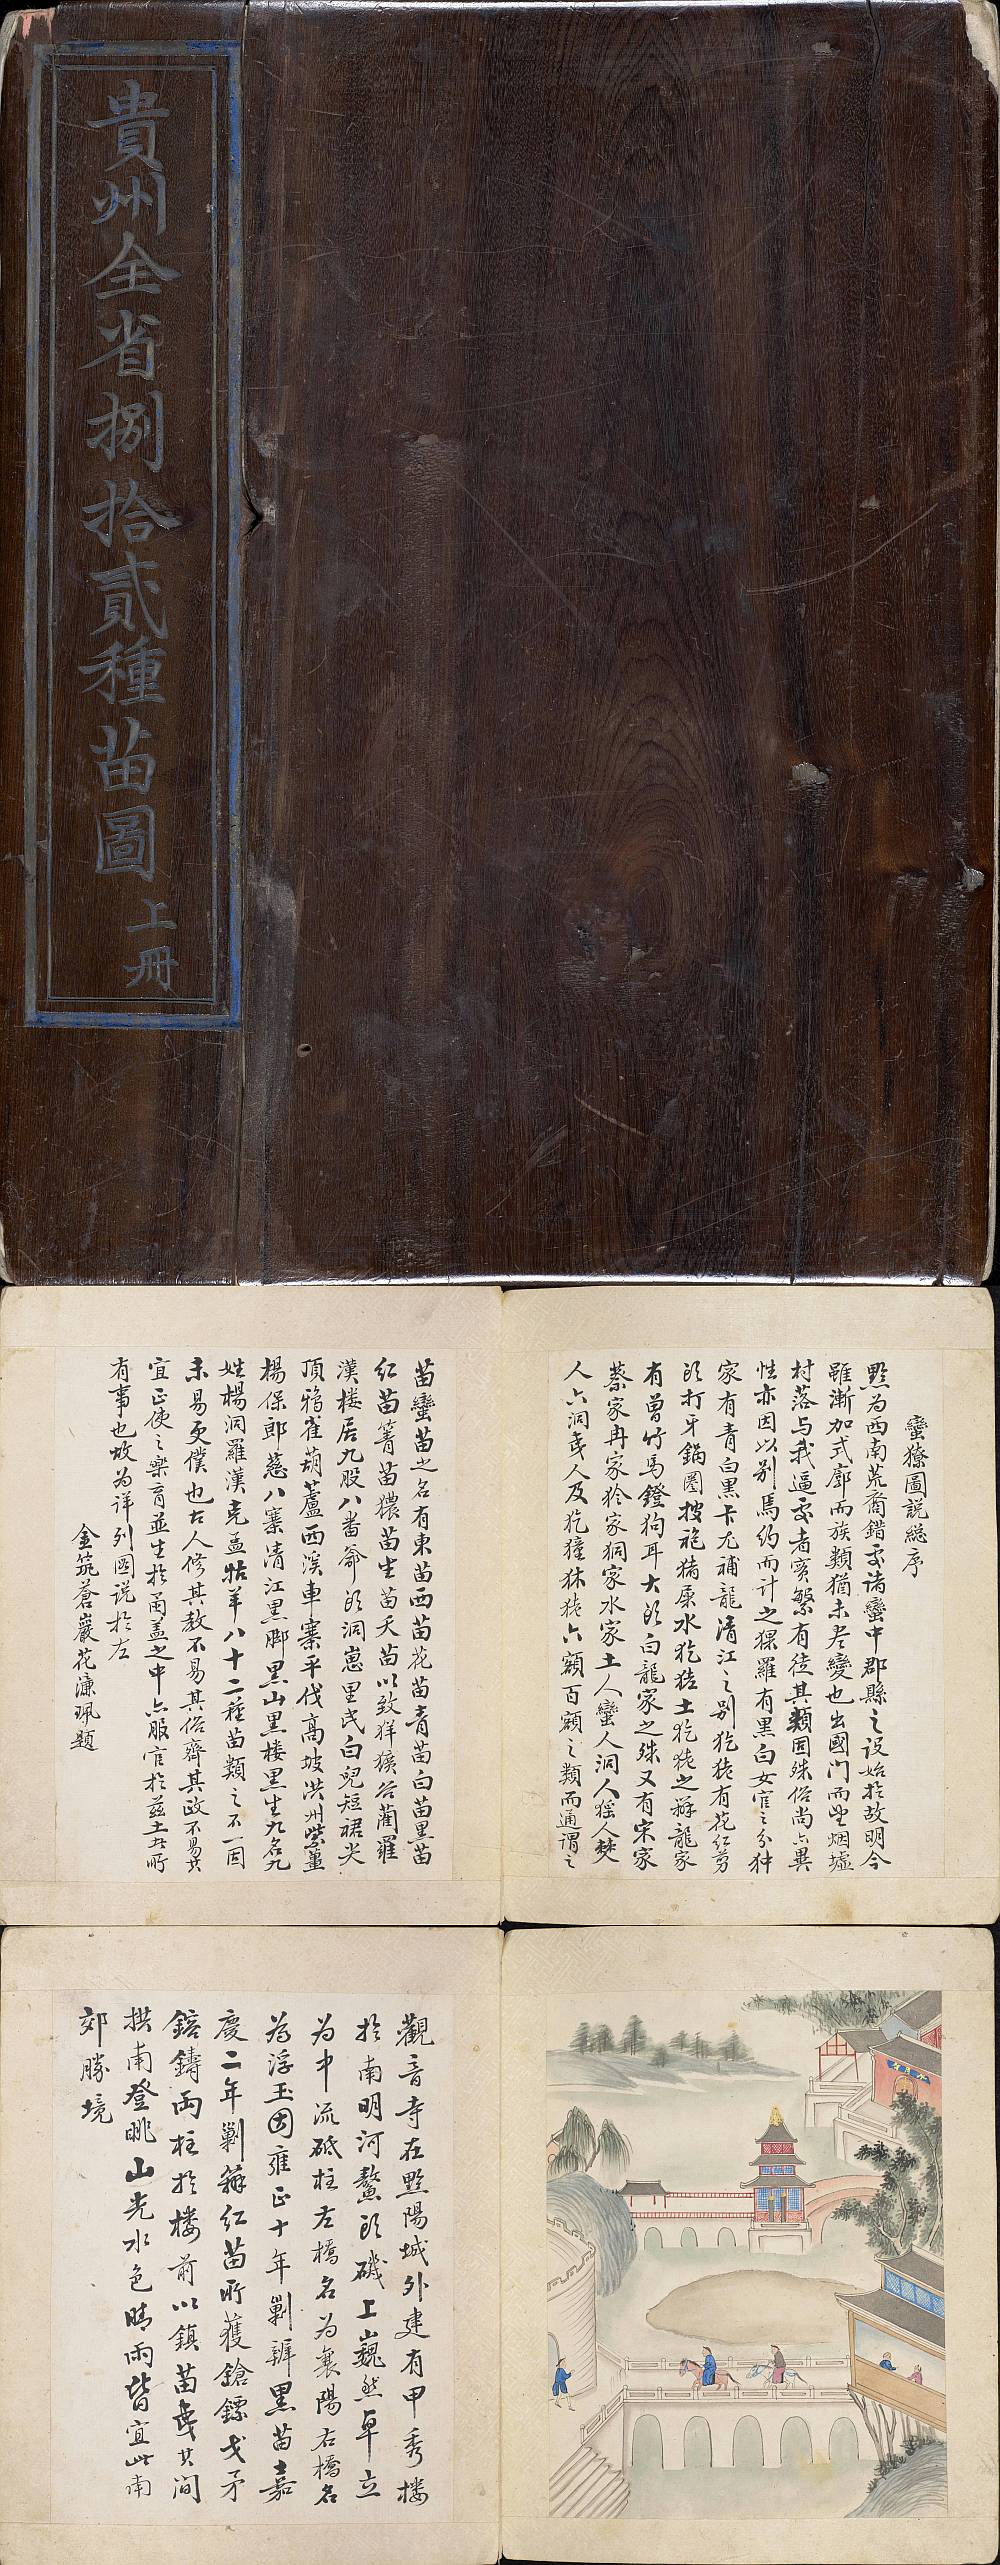 貴州全省捌拾貳種苗圖
上冊
蠻獠圖說總序
黔为西南荒裔錯處诸蠻中郡縣之设始於故明今
雖漸加式廓而族類猶未尽變也出國門而望烟墟
村落与我逼處者寔繁有徒其類固殊俗尚亦異
性亦因以别焉约而计之猓羅有黑白女官之分狆
家有青白黑卡尤補龍清江之别犵狫有花红剪
头打牙鍋圈披袍猪屎水犵狫土犵狫之辦龍家
有曾竹馬鐙狗耳大头白龍家之殊又有宋家
蔡家冉家狑家狪家水家土人蠻人洞人猺人僰
人六洞夷人及犵獞𤝞狫六額百額之類而通谓之
苗蠻苗之名有東苗西苗花苗青苗白苗黑苗
红苗箐苗㺜苗生苗夭苗以致牂獚谷藺羅
漢楼居九股八番爺头洞崽里民白兒短裙尖
頂鴉雀葫蘆西溪車寨平伐高坡洪州紫薑
楊保郎慈八寨清江黑脚黑山黑楼黑生九名九
姓楊洞羅漢克孟牯羊八十二種苗類之不一固
未易更僕也古人修其教不易其俗齊其政不易其
宜正使之樂育並生於甬盖之中亦服官於兹土者所
有事也故为详列图说於左
金筑蒼巖花濂珮題
觀音寺在黔陽城外建有甲秀楼
於南明河鰲头磯上巍然卓立
为中流砥柱左橋名为襄陽右橋名
为浮玉因雍正十年剿辦黑苗嘉
慶二年剿辦红苗所獲鎗鏢戈矛
鎔鑄両柱於楼前以鎮苗夷其间
拱南登眺山光水色晴雨皆宜此南
郊勝境